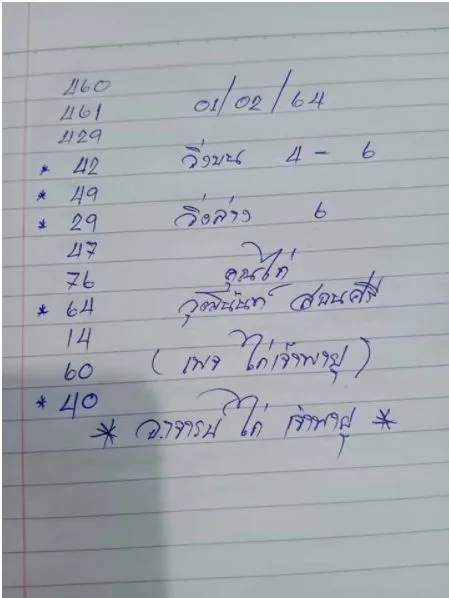 460
461
01/02/64
429
* 42
วิ่งบน 4 - 6
* 49
* 29
วิ่งล่าง 6
47
76
คุณไก่
* 64
วุฒินันท์ สอนศรี
14
60
(เพจ ไก่เจ้าพายุ)
* 40
* อ.จารย์ ไก่ เจ้าพายุ *